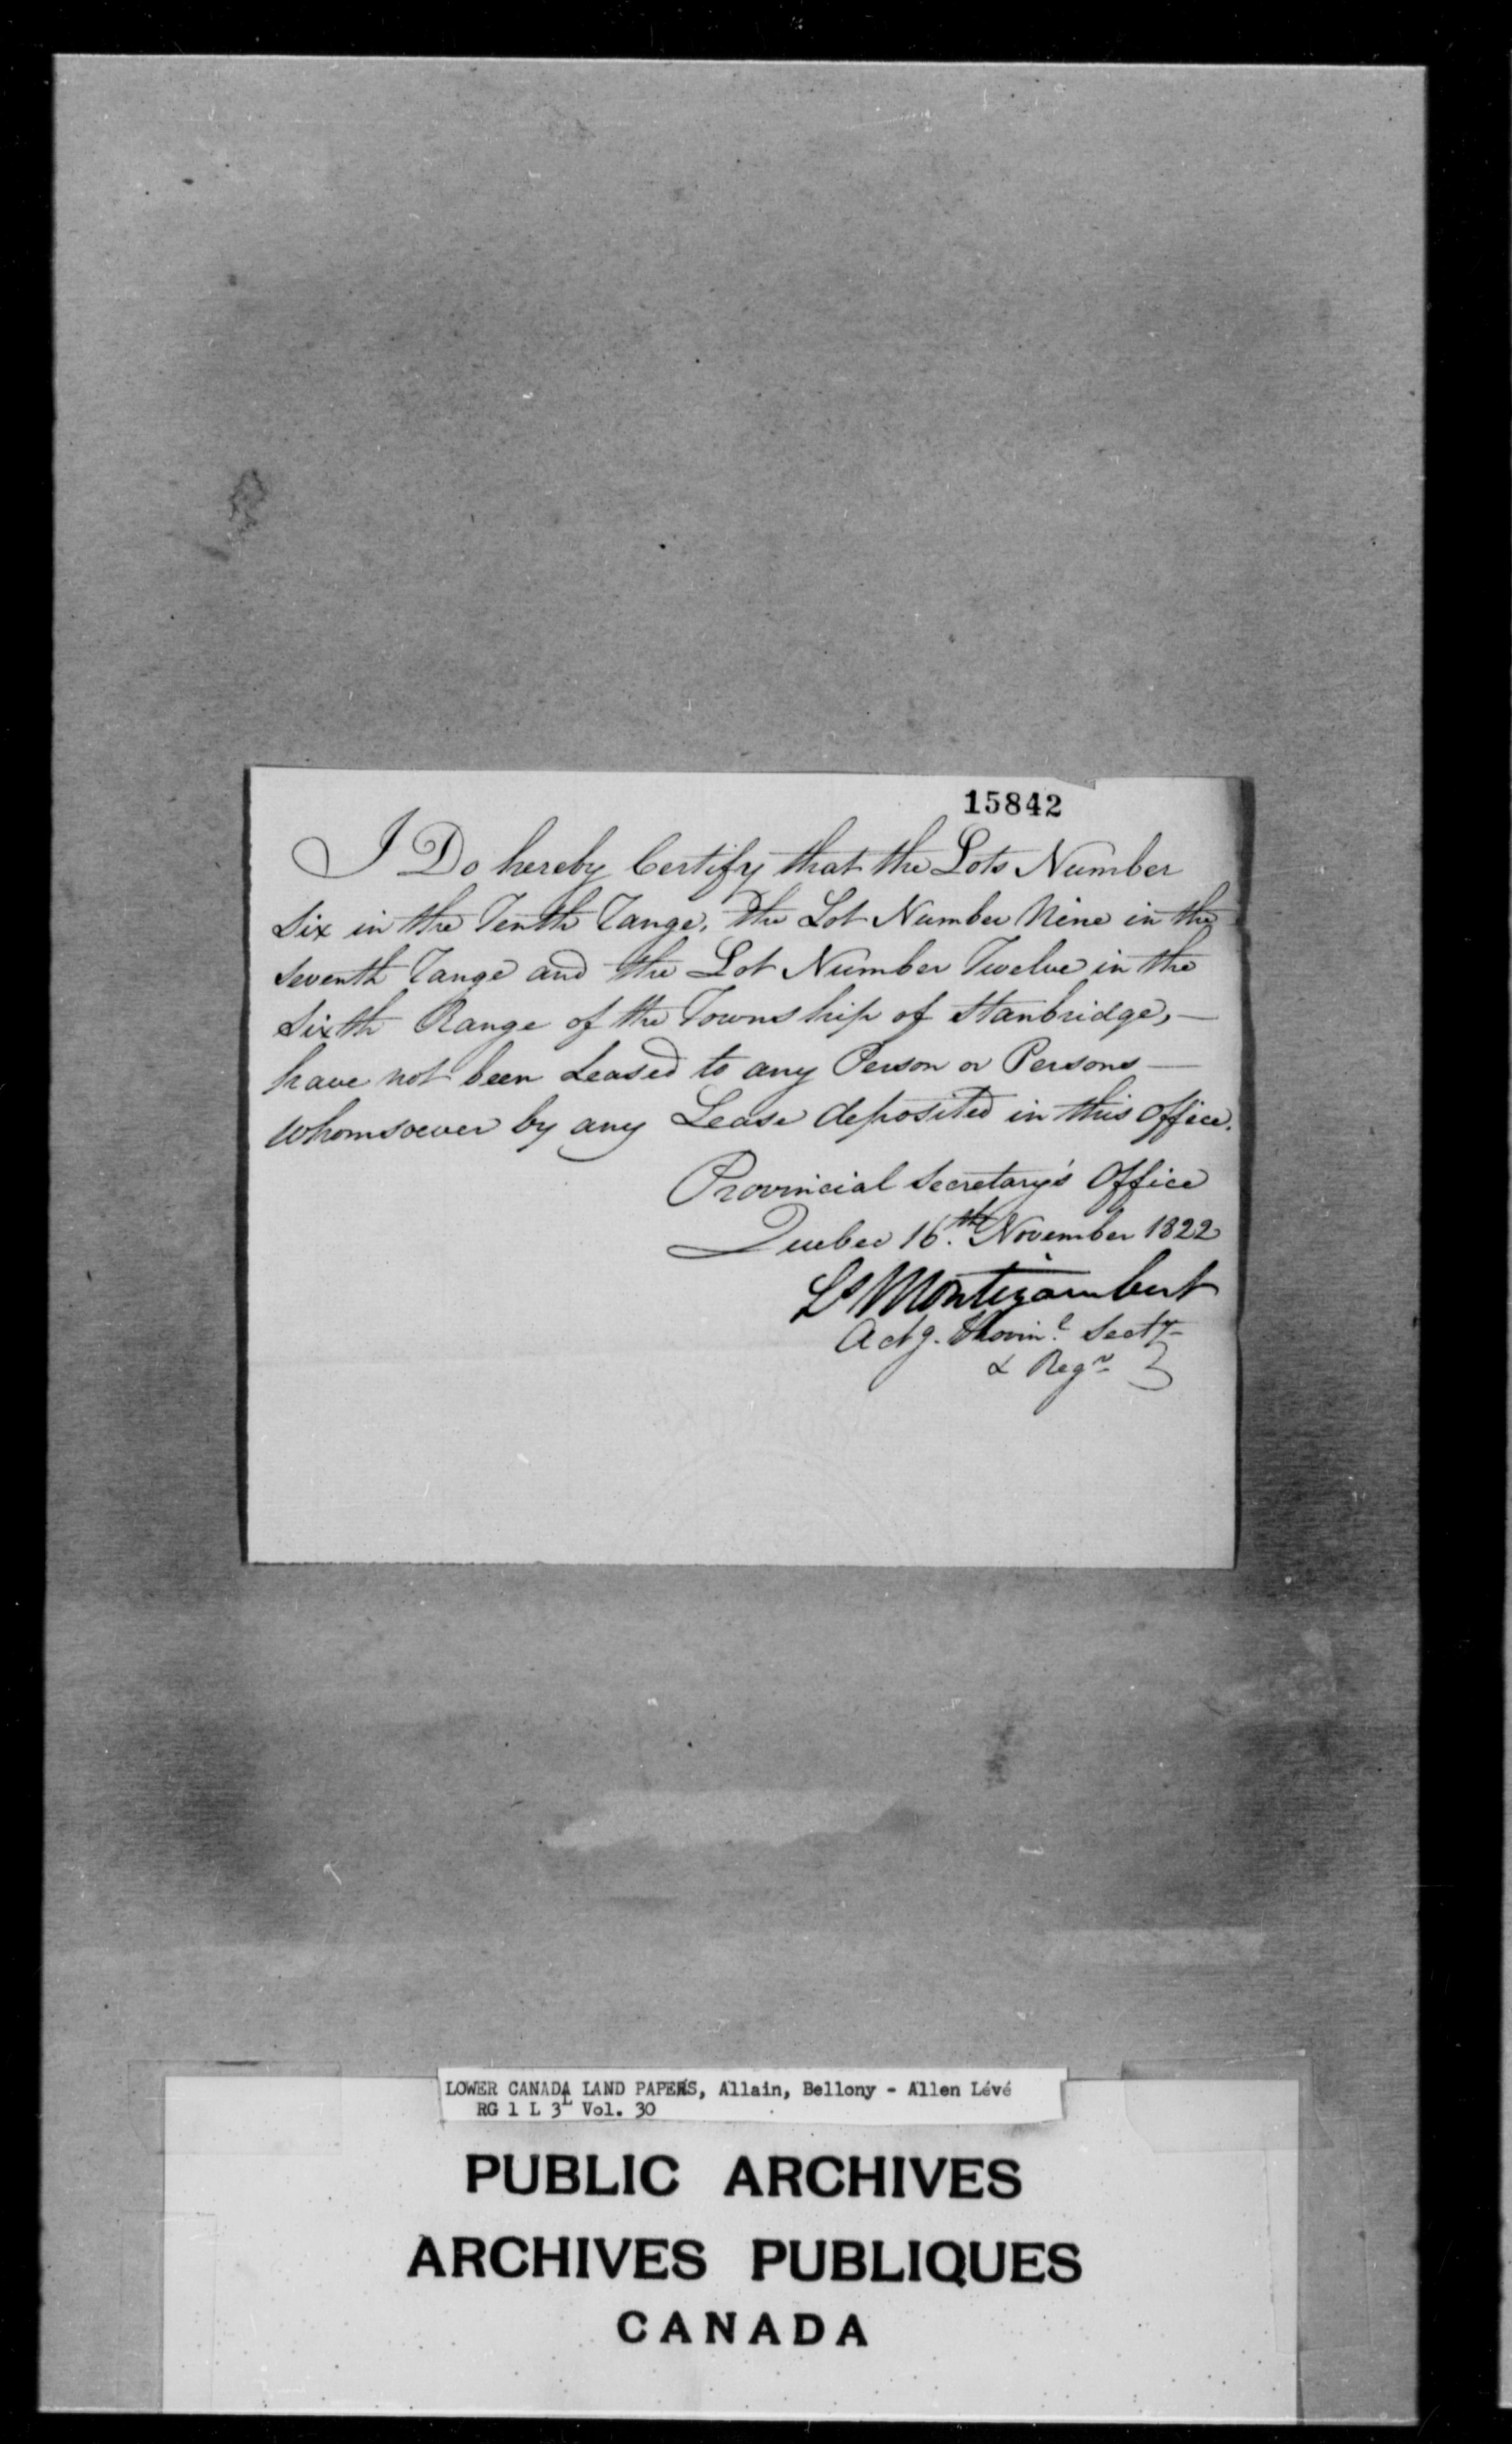 15842
I Do hereby Certify that the Lots Number
Six in the Tenth Range, the Lot Number Nine in the
Seventh Range and the Lot Number Twelve in the
Sixth Range of the Township of Stanbridge, —
have not been Leased to any Person or Persons —
whomsoever by any Lease deposited in this Office.
Provincial Secretary's Office
Quebec 16.th November 1822
Ls Montizambert
Actg. Provinl. Secty
& Regr
LOWER CANADA LAND PAPERS, Allain, Bellony - Allen Lévé
RG 1 L 3L Vol. 30
PUBLIC ARCHIVES
ARCHIVES PUBLIQUES
CANADA